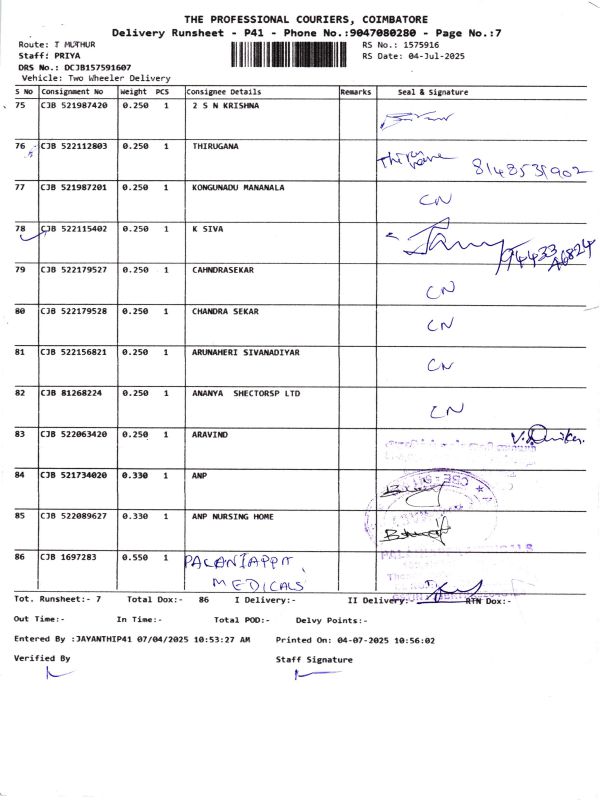 THE PROFESSIONAL COURIERS, COIMBATORE
Delivery Runsheet - P41 - Phone No.:9047080280 - Page No.:7
Route: T MUTHUR
RS No.: 1575916
Staff: PRIYA
RS Date: 04-Jul-2025
DRS No.: DCJB157591607
Vehicle: Two Wheeler Delivery
S No Consignment No Weight PCS Consignee Details Remarks Seal & Signature
75 CJB 521987420 0.250 1 2 S N KRISHNA
76 CJB 522112803 0.250 1 THIRUGANA 8148531902
77 CJB 521987201 0.250 1 KONGUNADU MANANALA CN
78 CJB 522115402 0.250 1 K SIVA
79 CJB 522179527 0.250 1 CAHNDRASEKAR CN
80 CJB 522179528 0.250 1 CHANDRA SEKAR CN
81 CJB 522156821 0.250 1 ARUNAHERI SIVANADIYAR CN
82 CJB 81268224 0.250 1 ANANYA SHECTORSP LTD CN
83 CJB 522063420 0.250 1 ARAVIND
84 CJB 521734020 0.330 1 ANP
85 CJB 522089627 0.330 1 ANP NURSING HOME
86 CJB 1697283 0.550 1 PALANIAPPA
MEDICALS
Tot. Runsheet:- 7 Total Dox:- 86 I Delivery:- II Delivery:- RTN Dox:-
Out Time:- In Time:- Total POD:- Delvy Points:-
Entered By :JAYANTHIP41 07/04/2025 10:53:27 AM Printed On: 04-07-2025 10:56:02
Verified By Staff Signature